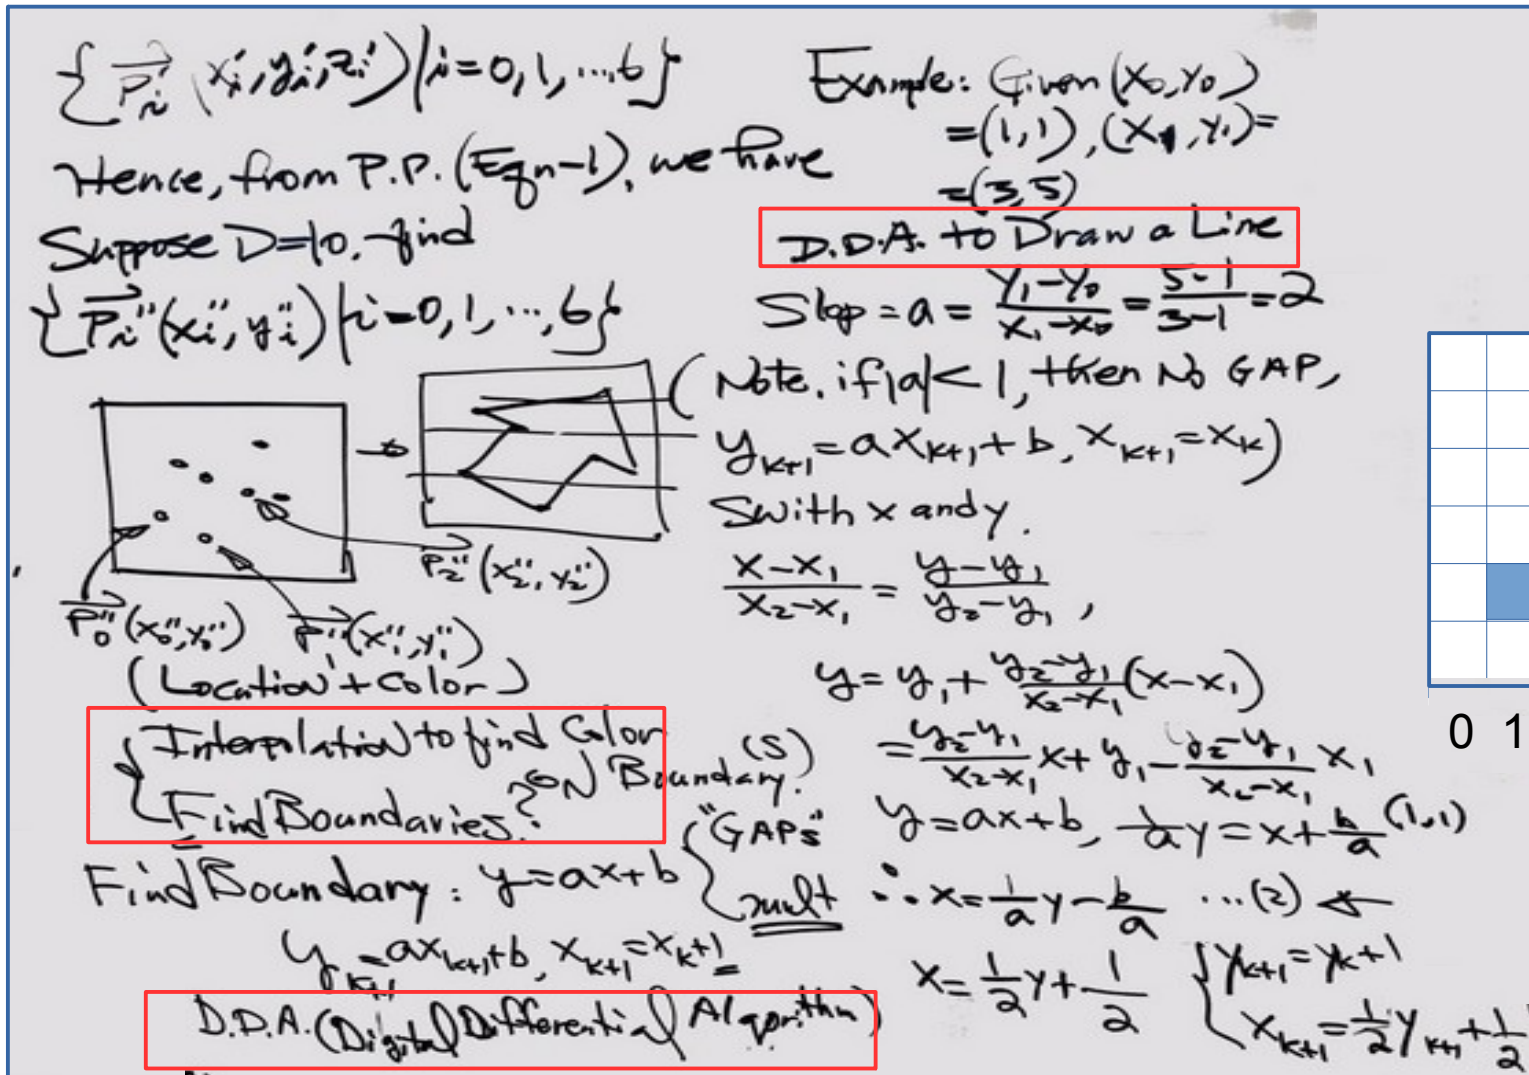 {P⃗i'(xi', yi', zi') | i=0,1,...,6}
Hence, from P.P. (Eqn-1), we have
Suppose D=10, find
{P⃗i''(xi'', yi'') | i=0,1,...,6}
P⃗2''(x2'', y2'')
P⃗0''(x0'', y0'') P⃗1''(x1'', y1'')
(Location + Color)
{Interpolation to find Color
Find Boundaries. ? ON Boundary(s).
Find Boundary: y=ax+b { "GAPs"
mult
yk+1=axk+1+b, xk+1=xk+1
D.D.A. (Digital Differential Algorithm)
Example: Given (X0, Y0)
=(1,1), (X1, Y1)=
=(3,5)
D.D.A. to Draw a Line
Slop = a = (Y1-Y0)/(X1-X0) = (5-1)/(3-1) = 2
(Note. if |a|<1, then No GAP,
yk+1=axk+1+b, xk+1=xk)
Swith x and y.
(x-x1)/(x2-x1) = (y-y1)/(y2-y1),
y = y1 + (y2-y1)/(x2-x1) (x-x1)
= (y2-y1)/(x2-x1) x + y1 - (y2-y1)/(x2-x1) x1
y=ax+b, 1/a y = x + b/a (1,1)
∴ x = 1/a y - b/a ...(2) ←
x = 1/2 y + 1/2 { yk+1 = yk+1
xk+1 = 1/2 yk+1 + 1/2
0 1